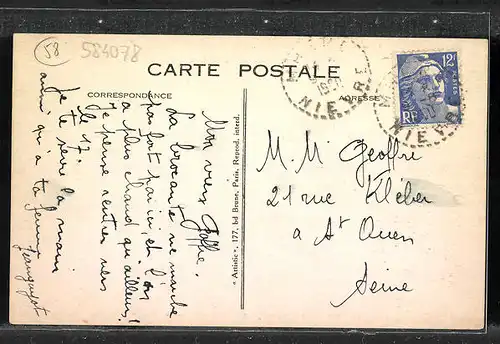 58
584078
CARTE POSTALE
CORRESPONDANCE
ADRESSE
NIEVRE
12F
RF
NIEVRE
Mon vieux Geoffre.
La brocante ne marche
pas fort par ici et l'on
a plus chaud qu'ailleurs!
Je pense rentrer vers
le 17.
Je te serre la main
ainsi qu'à ta femme
« Artistic », 177, bd Brune, Paris, Reprod. interd.
M. M. Geoffre
21 rue Kléber
à St Ouen
Seine